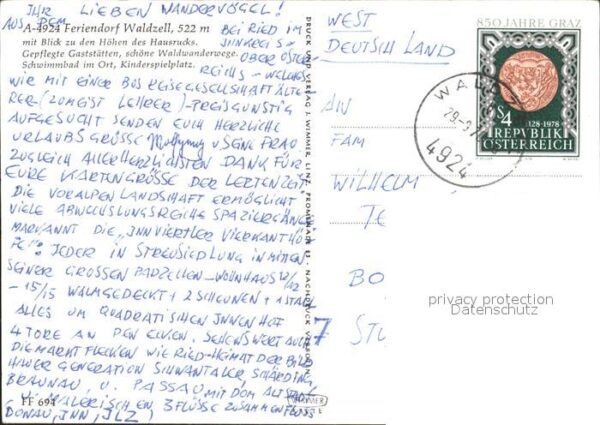 IHR LIEBEN WANDERVÖGEL!
AUS DEM
A-4924 Feriendorf Waldzell, 522 m
mit Blick zu den Höhen des Hausrucks.
Gepflegte Gaststätten, schöne Waldwanderwege.
Schwimmbad im Ort, Kinderspielplatz.
BEI RIED IM
INNKREIS -
OBERÖSTER
REICHS - WELCHES
WIR MIT EINER BUSREISEGESELLSCHAFT ÄLTE
RER (ZUMEIST LEHRER) - PREISGÜNSTIG
AUFGESUCHT SENDEN EUCH HERZLICHE
URLAUBSGRÜSSE Wolfgang u SEINE FRAU
ZUGLEICH ALLERHERZLICHSTEN DANK FÜR
EURE KARTENGRÜSSE DER LETZTEN ZEIT
DIE VORALPENLANDSCHAFT ERMÖGLICHT
VIELE ABWECHSLUNGSREICHE SPAZIERGÄNGE
MARKANNT DIE „INNVIERTLER VIERKANTHÖ
FE": JEDER IN STREUSIEDLUNG INMITTEN
SEINER GROSSEN PARZELLEN - WOHNHAUS 12/12
- 15/15 WALMGEDECKT + 2 SCHEUNEN + 1 STALL
ALLES UM QUADRATISCHEN INNENHOF
4 TORE AN DEN ECKEN. SEHENSWERT AUCH
DIE MARKTFLECKEN WIE RIED - HEIMAT DER BILD
HAUER GENERATION SCHWANTALER, SCHÄRDING,
BRAUNAU, U. PASSAU MIT DEM ALTSTADT
U. MALERISCHEN 3 FLÜSSE ZUSAMMENFLUSS
FF 694
(DONAU, INN, ILZ)
DRUCK UND VERLAG J. WIMMER, LINZ, PROMENADE 23. NACHDRUCK VERBOTEN
WIMMER
LINZ
WEST
DEUTSCHLAND
AN
FAM
WILHELM
BO
7 STU
850 JAHRE GRAZ
S 4
1128-1978
REPUBLIK
ÖSTERREICH
4924
privacy protection
Datenschutz